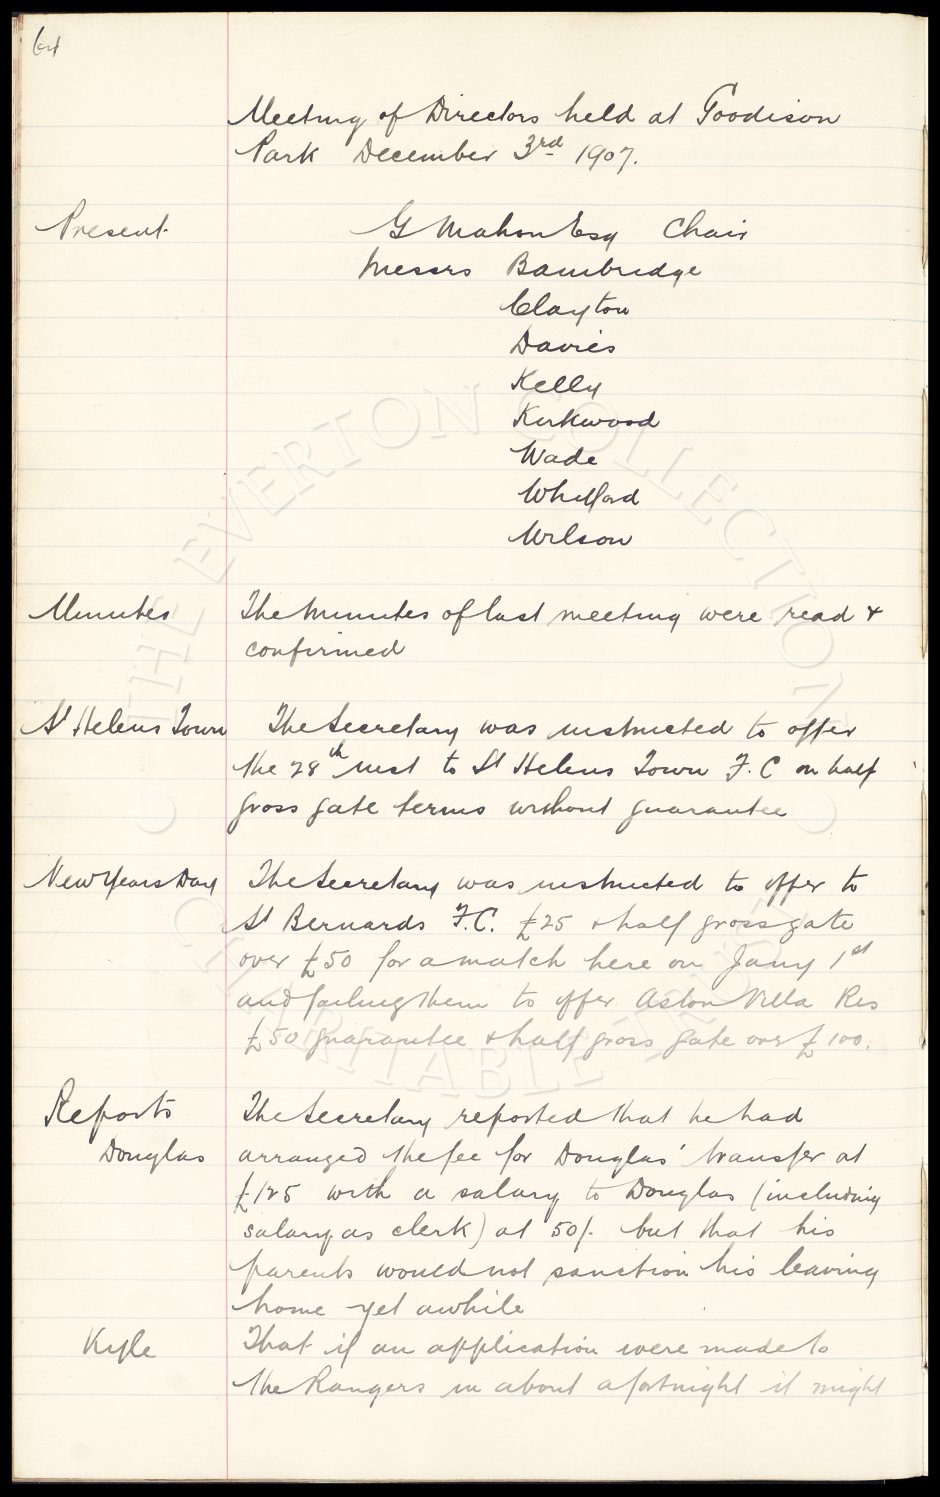 64
Meeting of Directors held at Goodison
Park December 3rd 1907.
Present.
G Mahon Esq Chair
Messrs Bambridge
Clayton
Davies
Kelly
Kirkwood
Wade
Whitford
Wilson
Minutes
The Minutes of last meeting were read &
confirmed
St Helens Town
The Secretary was instructed to offer
the 28th inst to St Helens Town F.C on half
gross gate terms without guarantee
New Years Day
The Secretary was instructed to offer to
St Bernards F.C. £25 & half gross gate
over £50 for a match here on Jany 1st
and failing them to offer Aston Villa Res
£50 guarantee & half gross gate over £100.
Reports
Douglas
The Secretary reported that he had
arranged the fee for Douglas' transfer at
£125 with a salary to Douglas (including
salary as clerk) at 50/- but that his
parents would not sanction his leaving
home yet awhile
Kyle
That if an application were made to
the Rangers in about a fortnight it might
THE EVERTON COLLECTION
CHARITABLE TRUST